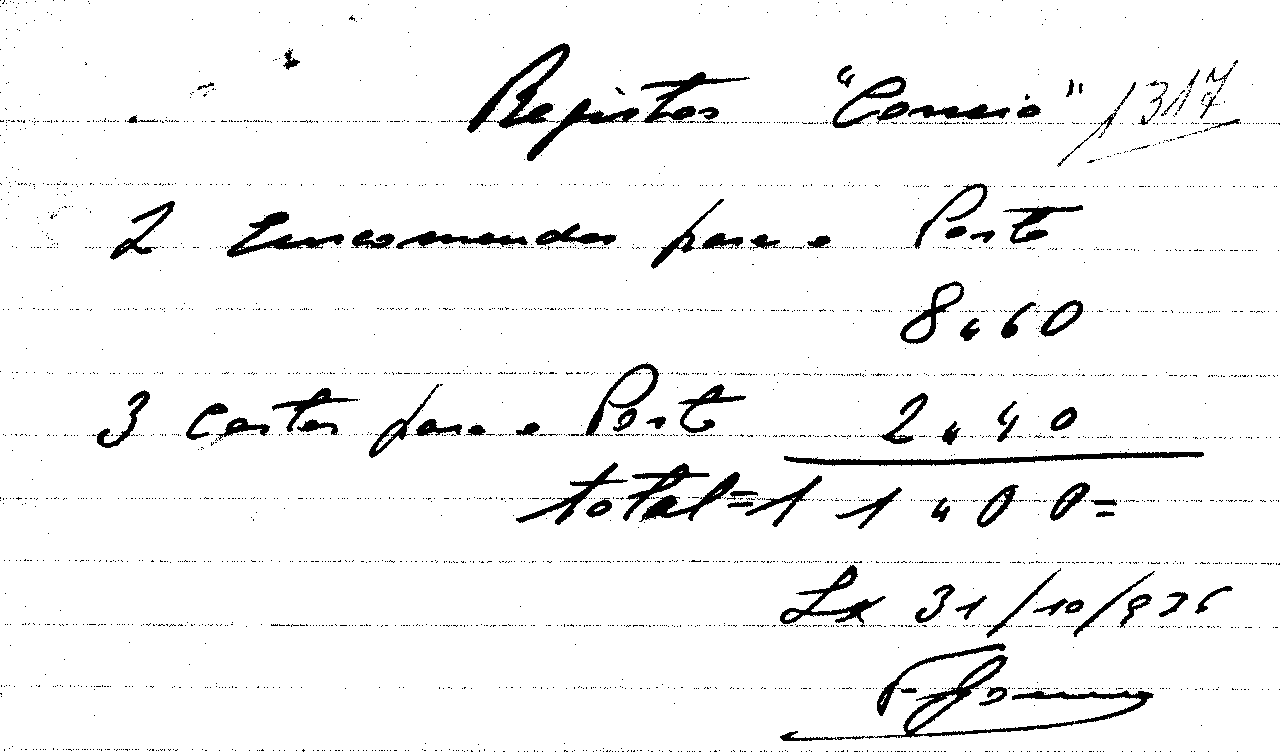 Registos "Correio" /1317
2 Encomendas para o Porto
8"60
3 Cartas para o Porto 2"40
total=11"00=
Lx 31/10/926